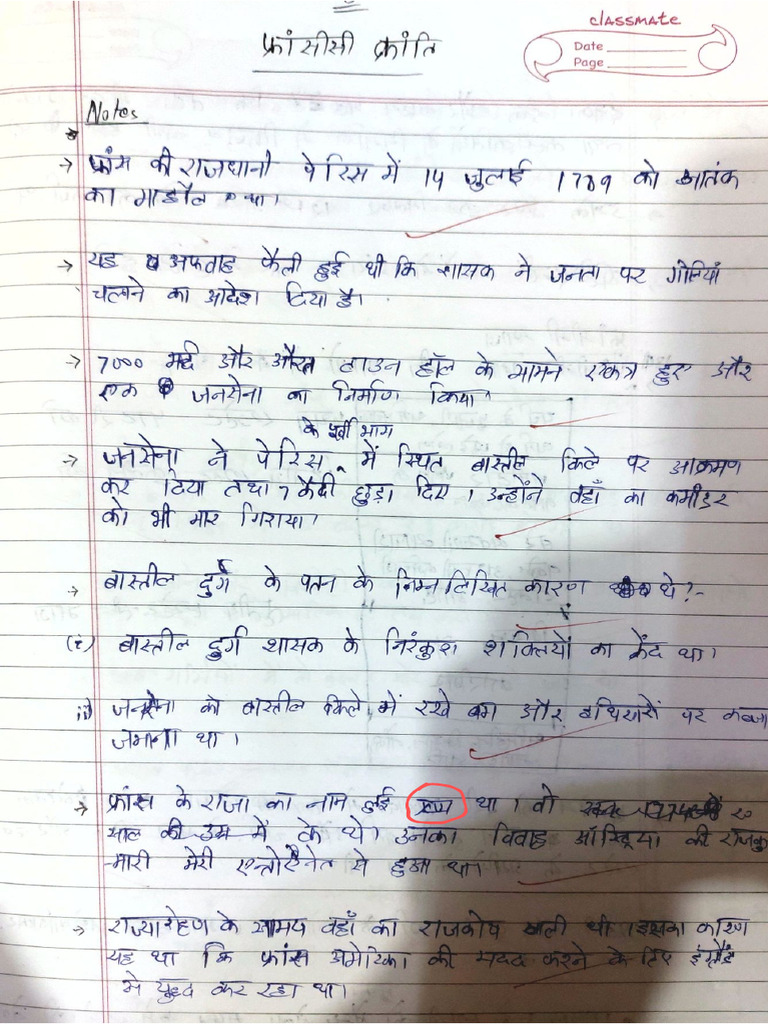 classmate
Date
Page
फ्रांसीसी क्रांति
Notes
→ फ्रांस की राजधानी पेरिस में 14 जुलाई 1789 को आतंक
का माहौल था।
→ यह अफवाह फैली हुई थी कि शासक ने जनता पर गोलियां
चलाने का आदेश दिया है।
→ 7000 मर्द और औरत टाउन हॉल के सामने एकत्र हुए और
एक जनसेना का निर्माण किया।
के पूर्वी भाग
→ जनसेना ने पेरिस में स्थित बास्तील किले पर आक्रमण
कर दिया तथा 7 कैदी छुड़ा दिए। उन्होंने वहाँ का कमांडर
को भी मार गिराया।
→ बास्तील दुर्ग के पतन के निम्नलिखित कारण थे?-
(i) बास्तील दुर्ग शासक के निरंकुश शक्तियों का केंद था।
ii) जनसेना को बास्तील किले में रखे बम और हथियारों पर कब्जा
जमाना था।
→ फ्रांस के राजा का नाम लुई था। वो 20
साल की उम्र में के थे। उनका विवाह ऑस्ट्रिया की राजकु
-मारी मेरी एन्तोएनेत से हुआ था।
→ राज्यारोहण के समय वहाँ का राजकोष खाली थी। इसका कारण
यह था कि फ्रांस अमेरिका की मदद करने के लिए इंग्लैंड
से युद्ध कर रहा था।